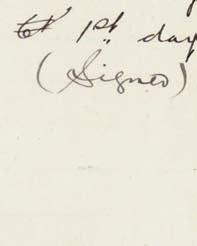 1st day
(Signed)